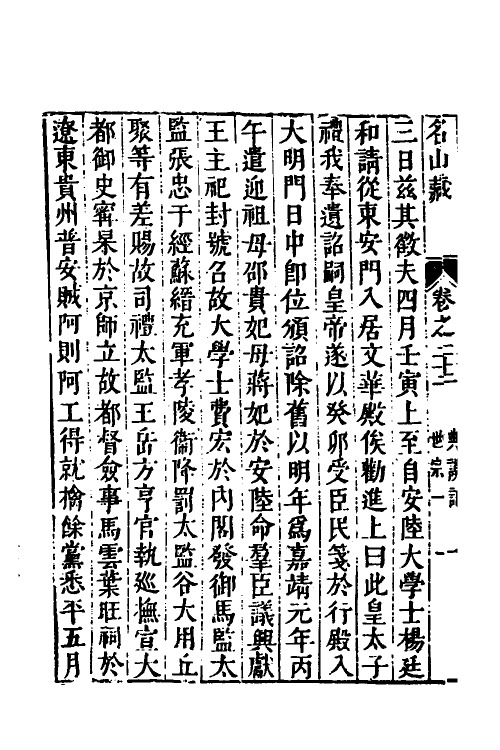 名山藏
卷之二十二
典謨記
世宗一
一
三日茲其徵夫四月壬寅上至自安陸大學士楊廷
和請從東安門入居文華殿俟勸進上曰此皇太子
禮我奉遺詔嗣皇帝遂以癸卯受臣民箋於行殿入
大明門日中即位頒詔除舊以明年爲嘉靖元年丙
午遣迎祖母邵貴妃母蔣妃於安陸命羣臣議興獻
王主祀封號召故大學士費宏於內閣發御馬監太
監張忠于經蘇縉充軍孝陵衞降罰太監谷大用丘
聚等有差賜故司禮太監王岳方亨官執巡撫宣大
都御史甯杲於京師立故都督僉事馬雲葉旺祠於
遼東貴州普安賊阿則阿工得就檎餘黨悉平五月